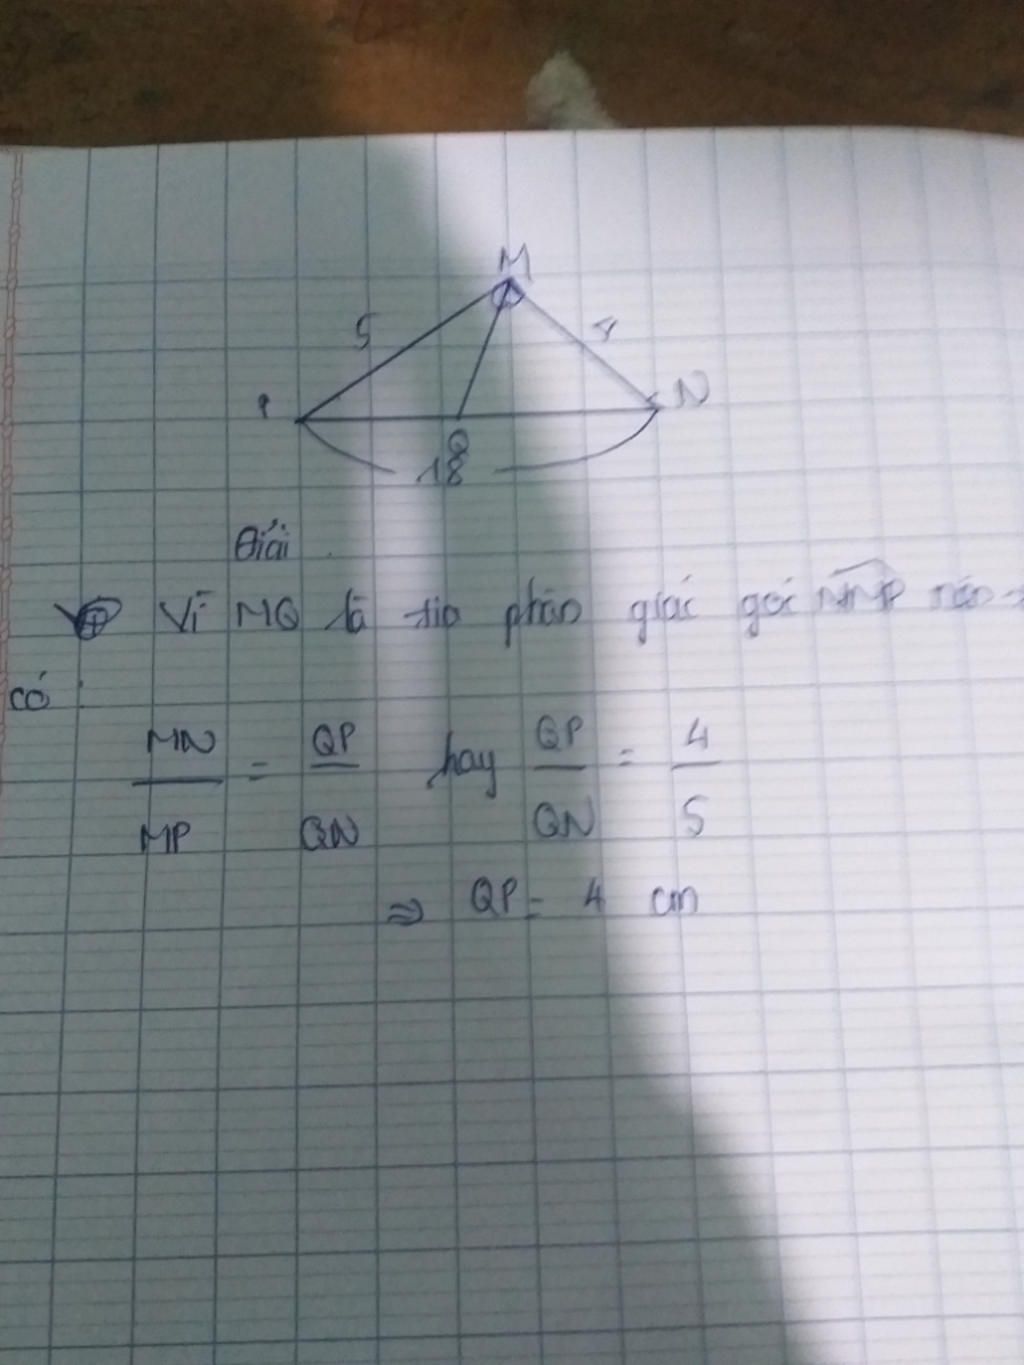 M
5
4
P
N
Q
18
Giải
Vì MQ là tia phân giác góc NMP nên
có :
MN/MP = QP/QN hay QP/QN = 4/5
⇒ QP = 4 cm